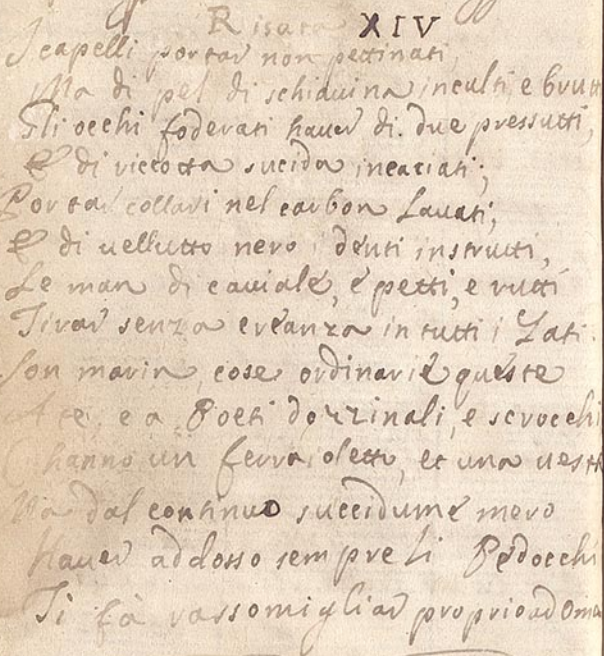 Risata XIV
I capelli portar non pettinati,
Ma di pel di schiauina, inculti e brutt
Gli occhi foderati hauer di due pressutti,
E di riccotta sucida incaciati;
Portar collari nel carbon lauati,
E di uellutto nero i denti instrutti,
Le man di cauiale, e petti, e rutti
Tirar senza creanza in tutti i lati.
Son marin, cose ordinarie queste
A te, e a Poeti dozzinali, e scrocchi
C' hanno un ferraioletto, et una uest
Ma dal continuo succidume mero
Hauer addosso sempre li Pedocchi
Ti fà rassomigliar proprio ad Ome